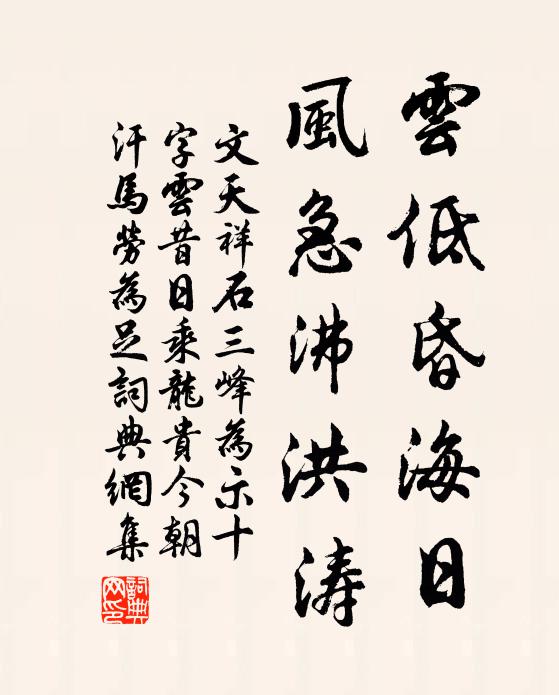 雲低昏海日
風急沸洪涛
文天祥石三峰為示十
字雲昔日乘龍貴今朝
汗馬勞為足詞典網集
詞典网印